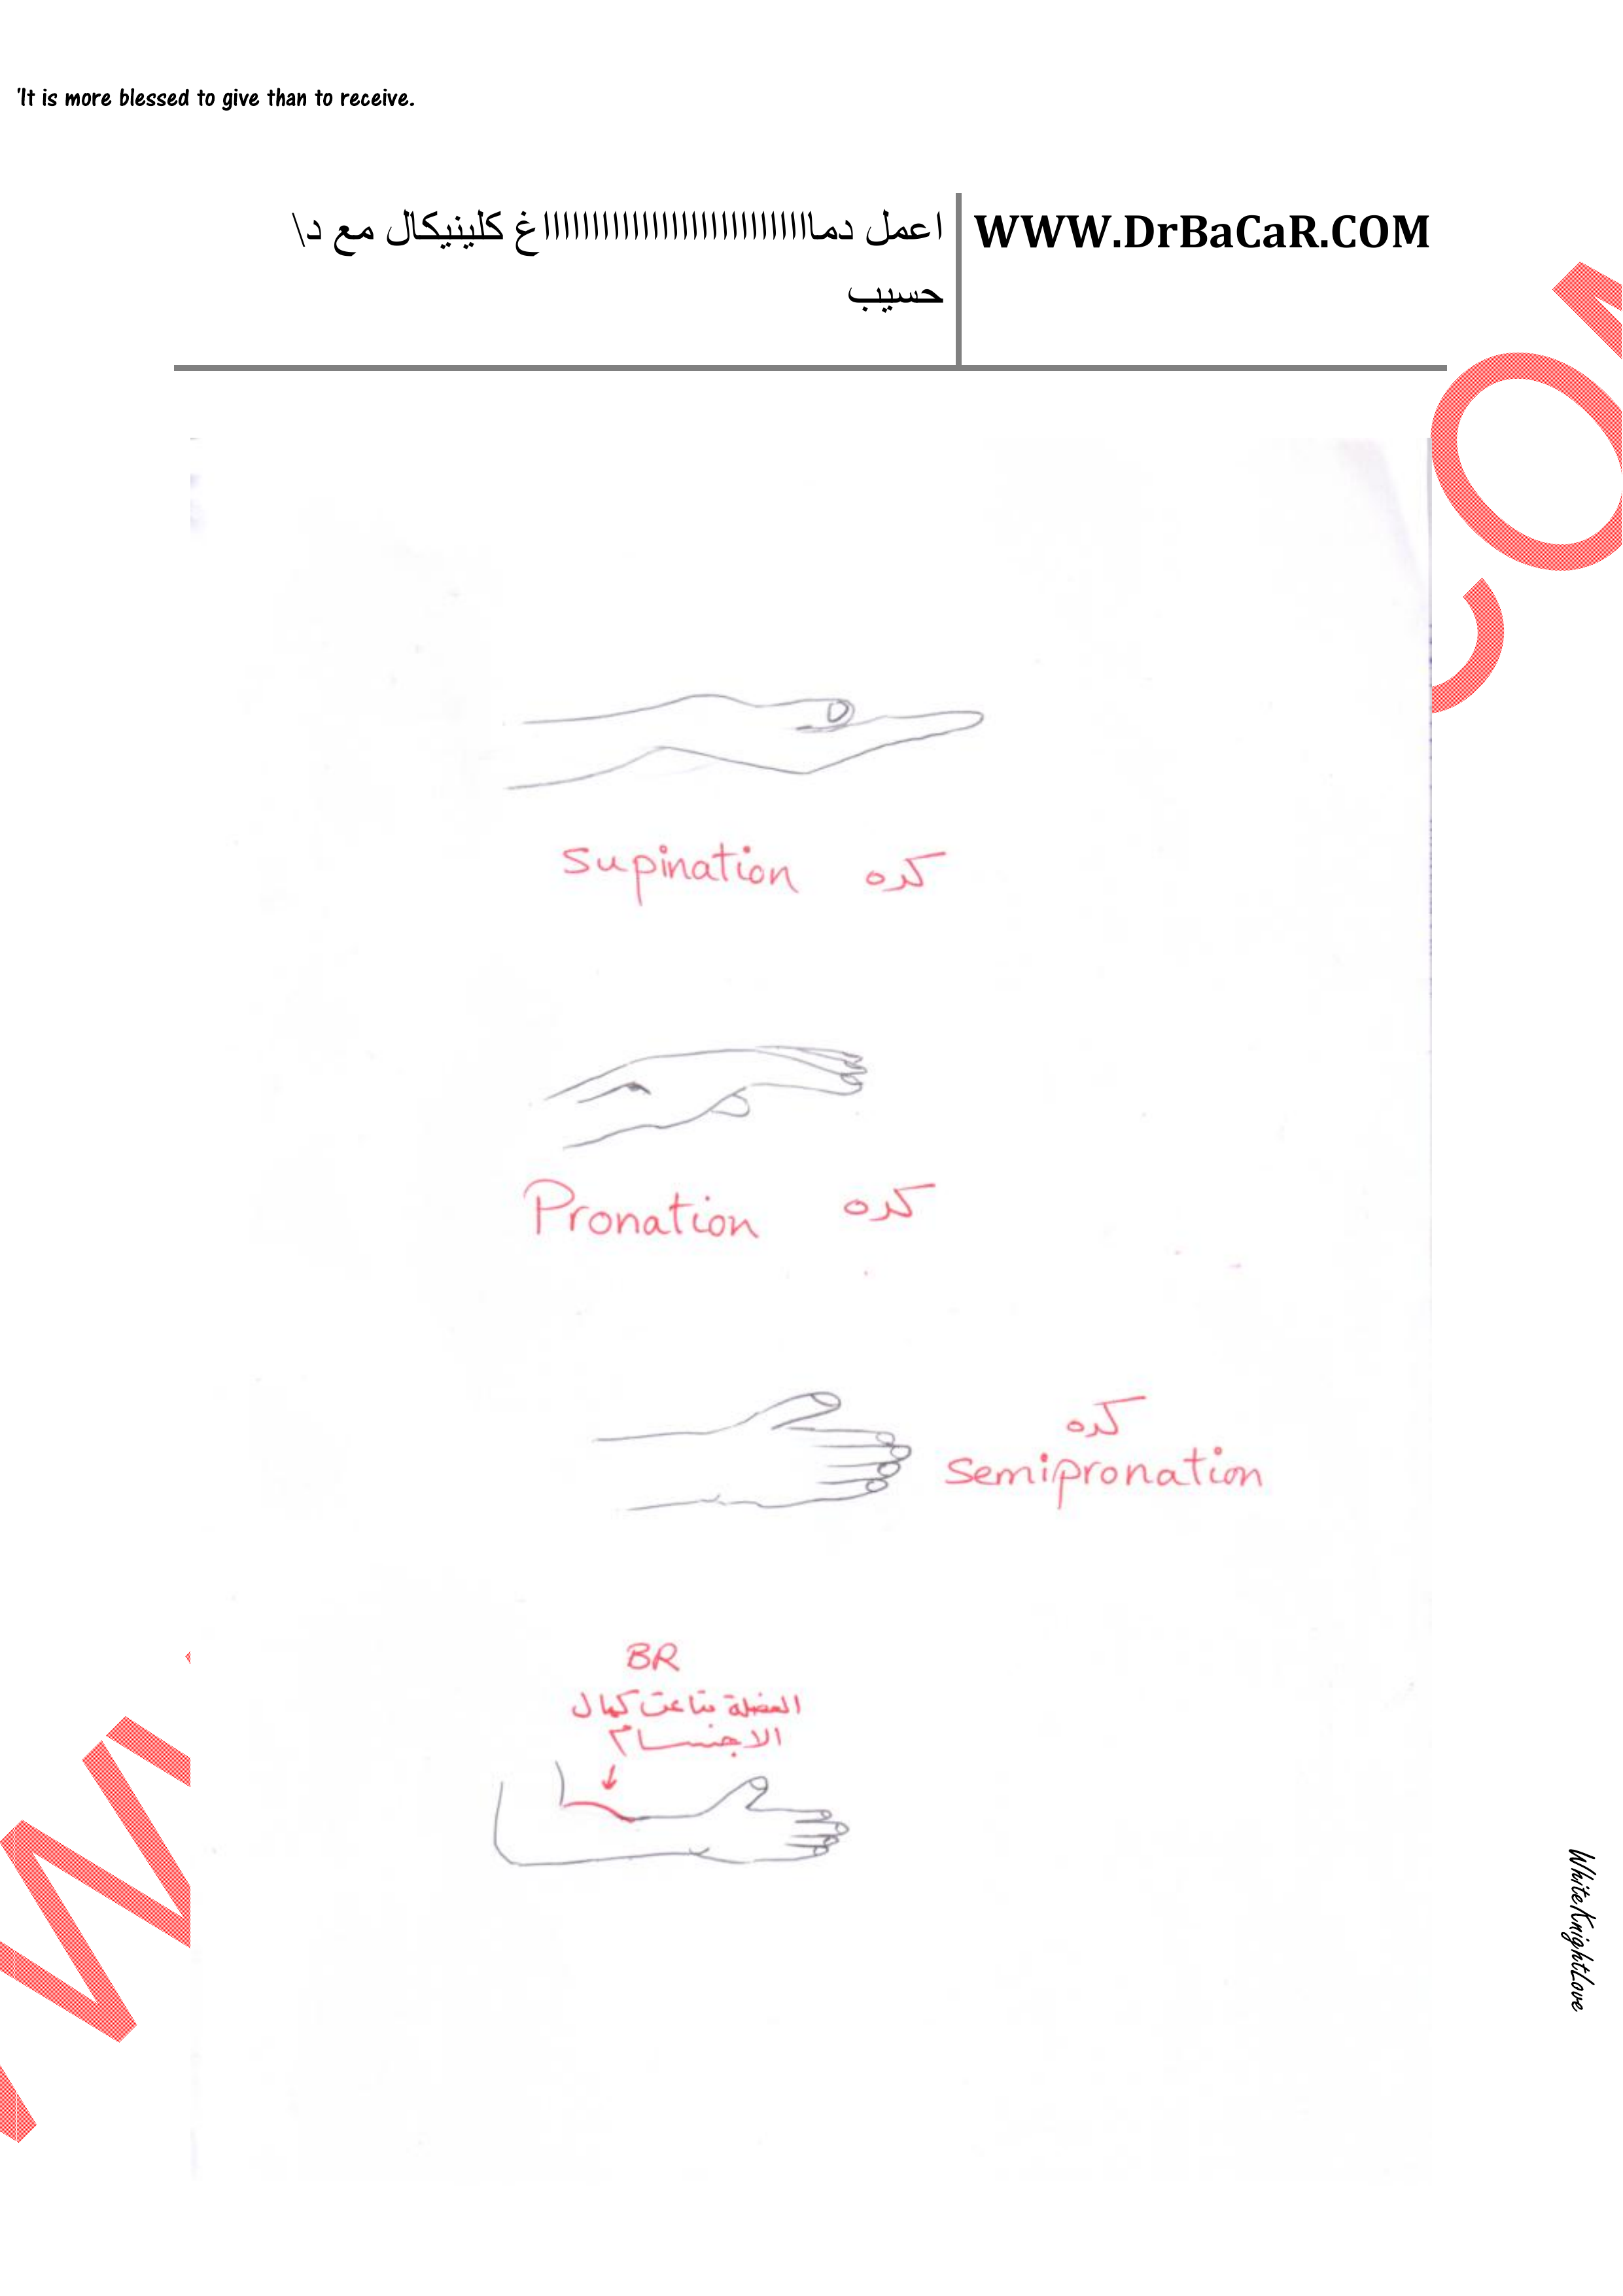 'It is more blessed to give than to receive.
WWW.DrBaCaR.COM
اعمل دمااااااااااااااااااااااااااااغ كلينيكال مع د\
حسيب
Supination كده
Pronation كده
كده
Semipronation
BR
العضلة بتاعت كمال
الاجسام
WhiteKnightLove